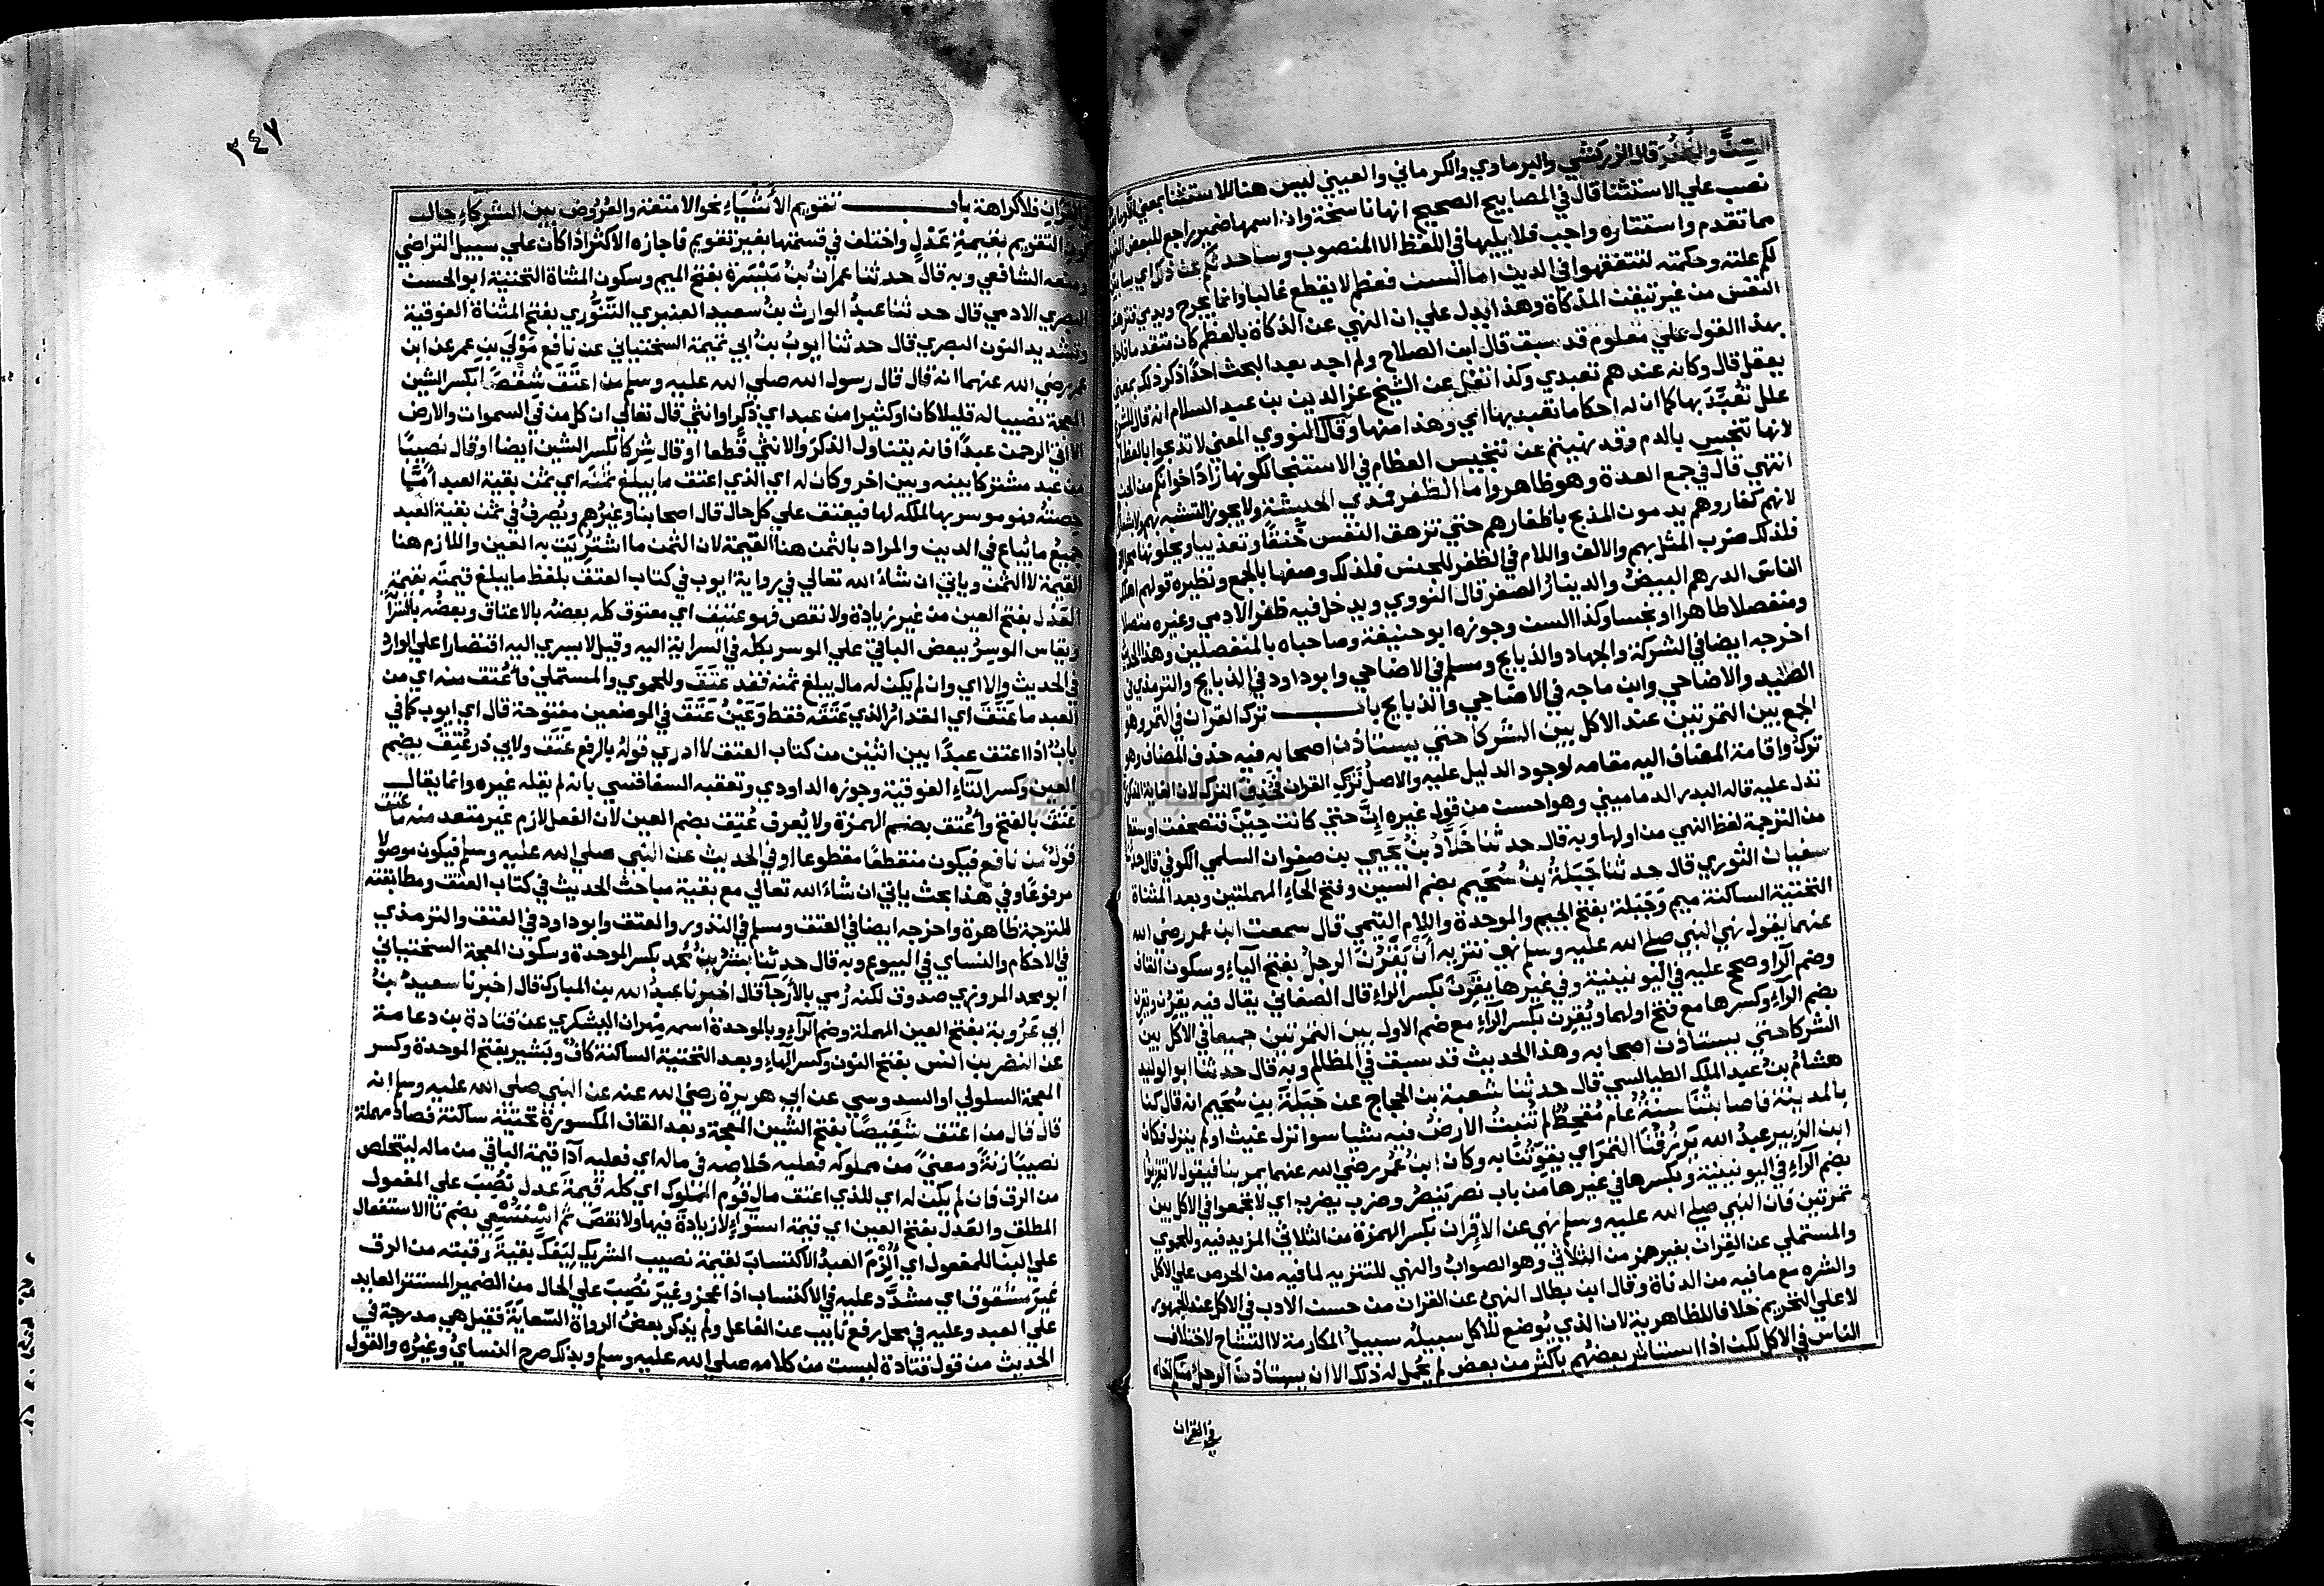 السِّنَّ والظُّفُرَ قال الزركشي والبرماوي والكرماني والعيني ليس هنا للاستثنا بمعني الا وما بعدها
نصب علي الاستثنا قال في المصابيح الصحيح انها ناسخة وان اسمها ضمير راجع للبعض المفهوم
مما تقدم واستتاره واجب فلا يليها في اللفظ الا المنصوب وساحدثكم عن ذلك اي سابين
لكم علته وحكمته لتتفقهوا في الدين اما السن فعظم لا يقطع غالبا وانما يجرح ويدمي فتزهق
النفس من غير تيقن الذكاة وهذا يدل علي ان النهي عن الذكاة بالعظم كان متقدما فاحال
بهذا القول علي معلوم قد سبق قال ابن الصلاح ولم اجد بعد البحث احدًا ذكر ذلك بمعني
يعقل قال وكانه عندهم تعبدي وكذا نقل عن الشيخ عز الدين بن عبد السلام انه قال للشرع
علل تُعُبِّدَ بها كما ان له احكاما تعبد بها اي وهذا منها وقال النووي المعني لا تذبحوا بالعظام
لانها تنجس بالدم وقد نهيتم عن تنجيس العظام في الاستنجا لكونها زاد اخوانكم من الجن
انتهي قال في جمع العدة وهو ظاهر واما الظفر فمدي الحبشة ولا يجوز التشبه بهم ولا بشعارهم
لانهم كفار وهم يدمون المذبح باظفارهم حتي تزهق النفس خنقًا وتعذيبا ويحلونها
فلذلك ضرب المثل بهم والالف واللام في الظفر للجنس فلذلك وصفها بالجمع ونظيره قولهم اهلك
الناسَ الدرهم البيض والدينارُ الصفر قال النووي ويدخل فيه ظفر الادمي وغيره متصلا
ومنفصلا طاهرا او نجسا وكذا السن وجوزه ابو حنيفة وصاحباه بالمنفصلين وهذا الحديث
اخرجه ايضا في الشركة والجهاد والذبايح ومسلم في الاضاحي وابو داود في الذبايح والترمذي في
الصيد والاضاحي وابن ماجه في الاضاحي والذبايح باب ترك القران في التمر وهو
الجمع بين التمرتين عند الاكل بين الشركا حتي يستاذن اصحابه فيه حذف المضاف وهو
ترك واقامة المضاف اليه مقامه لوجود الدليل عليه والاصل تركُ القران فحُذِفَ الترك لان الغاية المذكورة
تدل عليه قاله البدر الدماميني وهو احسن من قول غيره انّ حتي كانت حين فتصحفت او سقط
من الترجمة لفظ النهي من اولها وبه قال حدثنا خَلّادُ بنُ يحيي بن صفوان السلمي الكوفي قال حدثنا
سفيان الثوري قال حدثنا جَبَلَةُ بنُ سُحَيمٍ بضم السين وفتح الحاء المهملتين وبعد المثناة
التحتية الساكنة ميم وَجَبَلة بفتح الجيم والموحدة واللام التيمي قال سمعت ابن عمر رضي الله
عنهما يقول نهي النبي صلي الله عليه وسلم نهي تنزيه أنْ يَقْرُنَ الرجلُ بفتح الياء وسكون القاف
وضم الرا وصحح عليه في اليونينية وفي غيرها يقرِن بكسر الراء قال الصغاني يقال فيه يقرُن ويقرِن
بضم الراء وكسرها مع فتح اولهما ويُقرِن بكسر الراء مع ضم الاول بين التمرتين جميعا في الاكل بين
الشركا حتي يستاذن اصحابه وهذا الحديث قد سبق في المظالم وبه قال حدثنا ابو الوليد
هشامُ بنُ عبد الملك الطيالسي قال حدثنا شعبة بن الحجاج عن جَبَلَةَ بنِ سُحَيمٍ انه قال كنا
بالمدينة فاصابتنَا سنةٌ عام مُقحِطٌ لم تُنبِتُ الارضُ فيه شيا سوا نزل غيث او لم ينزل فكان
ابن الزبير عبدُ الله يَرْزُقُنَا التمرَ اي يقوّتُنا به وكان ابنُ عُمَر رضي الله عنهما يمر بنا فيقول لا تقرُنوا
بضم الراء في اليونينية وبكسرها في غيرها من باب نصر يَنصُرُ وضرب يضرب اي لا تجمعوا في الاكل بين
تمرتين فان النبي صلي الله عليه وسلم نهي عن الاقران بكسر الهمزة من الثلاثي المزيد فيه وللحموي
والمستملي عن القِران بغير همز من الثلاثي وهو الصوابُ والنهي للتنزيه لما فيه من الحرص علي الاكل
والشره مع ما فيه من الدناة وقال ابن بطال النهيُ عن القران من حسن الادب في الاكل عند الجمهور
لا علي التحريم خلافا للظاهرية لان الذي يُوضع للاكل سبيلُه سبيلُ المكارمة لا التشاح لاختلاف
الناس في الاكل لكن اذا استاثر بعضُهم باكثر من بعض لم يحمل له ذلك الا ان يستاذن الرجلُ منكم اخاه
في القران
٣٤٧
في القران فلا كراهة باب تقويم الأشْيَاءِ نحو الامتعة والعُرُوض بين الشركَاءِ حال
كون التقويم بقيمةِ عَدْلٍ واختلف في قسمتها بغير تقويم فاجازه الاكثر اذا كان علي سبيل التراضي
ومنعه الشافعي وبه قال حدثنا عمرانُ بنُ مَيْسَرَة بفتح الميم وسكون المثناة التحتية ابو الحسن
البصري الادمي قال حدثنا عبدُ الوارث بنُ سعيد العنبري التّنّوري بفتح المثناة الفوقية
وتشديد النون البصري قال حدثنا ايوبُ بنُ ابي تميمة السختياني عن نافع مَوْلَي بنِ عمر عن ابن
عمر رضي الله عنهما انه قال قال رسول الله صلي الله عليه وسلم من اعتَقَ شِقْصًا بكسر الشين
المعجمة نصيبا له قليلا كان او كثيرا من عبد اي ذكر او انثي قال تعالي ان كل من في السموات والارض
الا اتي الرحمن عبدًا فانه يتناول الذكر والانثي قطعا او قال شِركًا بكسر الشين ايضا او قال نصيبًا
من عبد مشترك بينه وبين اخر وكان له اي الذي اعتق ما يبلغ ثمنَه اي ثمن بقية العبد امّا
حِصتُه فهو موسر بها لملكه لها فيعتق علي كل حال قال اصحابنا وغيرُهم ويُصرفُ في ثمن بقية العبد
جميعُ ما يُباع في الدين والمراد بالثمن هنا القيمةُ لان الثمن ما اشتُرِيَت به العين واللازم هنا
القيمة لا الثمن وياتي ان شاءَ الله تعالي في رواية ايوب في كتاب العتق بلفظ ما يبلغ قيمتَه بقيمةِ
العَدْل بفتح العين من غير زيادة ولا نقص فهو عتيق اي معتوق كله بعضُه بالاعتاق وبعضُه بالسراية
ويقاس الموسِرُ ببعض الباقي علي الموسر بكله في السراية اليه وقيل لا يسري اليه اقتصارا علي الوارد
في الحديث وإلا اي وان لم يكن له مال يبلغ ثمنه فقد عَتَقَ وللحموي والمستملي فأُعتق منه اي من
العبد ما عَتَقَ اي المقدار الذي عَتَقَه فقط وَعَيْنُ عَتَقَ في الموضعين مفتوحة قال اي ايوب كما في
بابُ اذا اعتق عبدًا بين اثنين من كتاب العتق لا ادري قولُهُ بالرفع عَتَقَ ولابي ذر عُتِقَ بضم
العين وكسر التاءِ الفوقية وجوزه الداودي وتعقبه السفاقسي بانه لم يقله غيره وانما يقال
عَتَقَ بالفتح وأُعتق بضم الهمزة ولا يُعرف عُتِق بضم العين لان الفعل لازم غير متعد منه ما عتق
قولٌ من نافع فيكون منقطعًا مقطوعا او في الحديث عن النبي صلي الله عليه وسلم فيكون موصولا
مرفوعًا وفي هذا بحث ياتي ان شاءَ الله تعالي مع بقية مباحث الحديث في كتاب العتق ومطابقته
للترجمة ظاهرة واخرجه ايضا في العتق ومسلم في النذور والعتق وابو داود في العتق والترمذي
في الاحكام والنساي في البيوع وبه قال حدثنا بشرُ بنُ محمد بكسر الموحدة وسكون المعجمة السختياني
ابو محمد المروزي صدوق لكنه رُمي بالارجا قال اخبرنا عبدُ الله بن المبارك قال اخبرنا سعيدُ بنُ
ابي عَرُوبة بفتح العين المهملة وضم الراءِ وبالموحدة اسمه مِهران اليشكري عن قتادة بن دعامة
عن النضر بن انس بفتح النون وكسر الهاءِ وبعد التحتية الساكنة كاف وبَشير بفتح الموحدة وكسر
المعجمة السلولي او السدوسي عن ابي هريرة رضي الله عنه عن النبي صلي الله عليه وسلم انه
قال قال من اعتق شَقِيصًا بفتح الشين المعجمة وبعد القاف المكسورة تحتية ساكنة فصاد مهملة
نصيبًا زنةً ومعنيً من مملوكه فعليه خلاصه في ماله اي فعليه أدآ قيمة الباقي من ماله ليتخلص
من الرق فان لم يكن له اي للذي اعتق مال قُوّم المملوك اي كله قيمةَ عدل نُصِبَ علي المفعول
المطلق والعَدل بفتح العين اي قيمة استوآءٍ لا زيادة فيها ولا نقصَ ثم اسْتُسْعِي بضم تا الاستفعال
علي البنا للمفعول اي أُلْزِمَ العبدُ الاكتسابَ لقيمة نصيب الشريك ليَفُكَّ بقيةَ رقبته من الرق
غيرَ مشقوق اي مشدَّد عليه في الاكتساب اذا عجز وغيرَ نُصِبَ علي الحال من الضمير المستتر العايد
علي العبد وعليه في محل رفع نايب عن الفاعل ولم يذكر بعضُ الرواة السّعايةَ فقيل هي مدرجة في
الحديث من قول قتادة ليست من كلامه صلي الله عليه وسلم وبذلك صرح النسايُ وغيرُه والقول